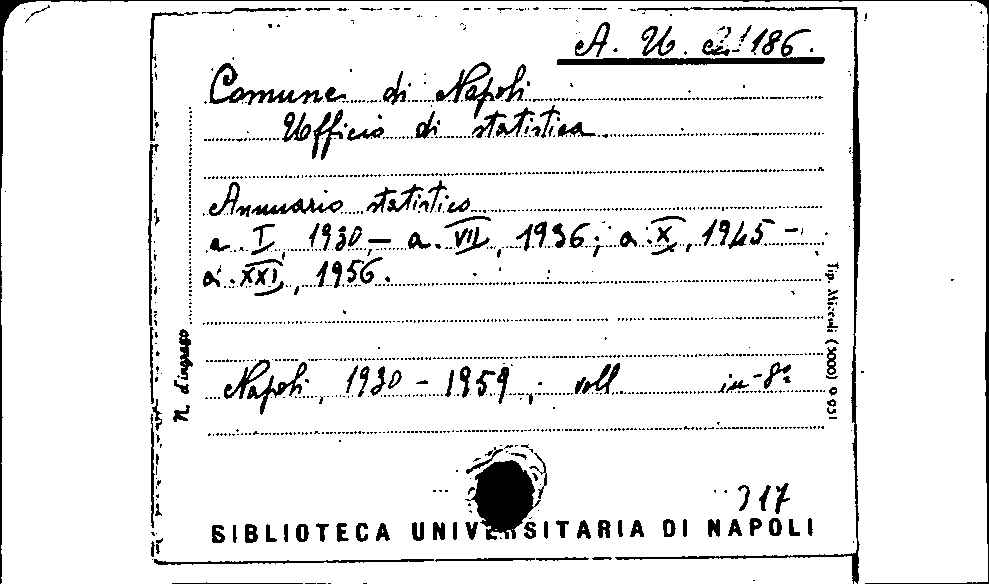 A. U. 2/186.
Comune di Napoli
Ufficio di statistica.
Annuario statistico
a. I, 1930, — a. VII, 1936; a. X, 1945 -
a. XXI, 1956.
Napoli, 1930 - 1959, voll. in-8º
N. d'ingresso
Tip. Miccoli (5000)
317
BIBLIOTECA UNIVERSITARIA DI NAPOLI